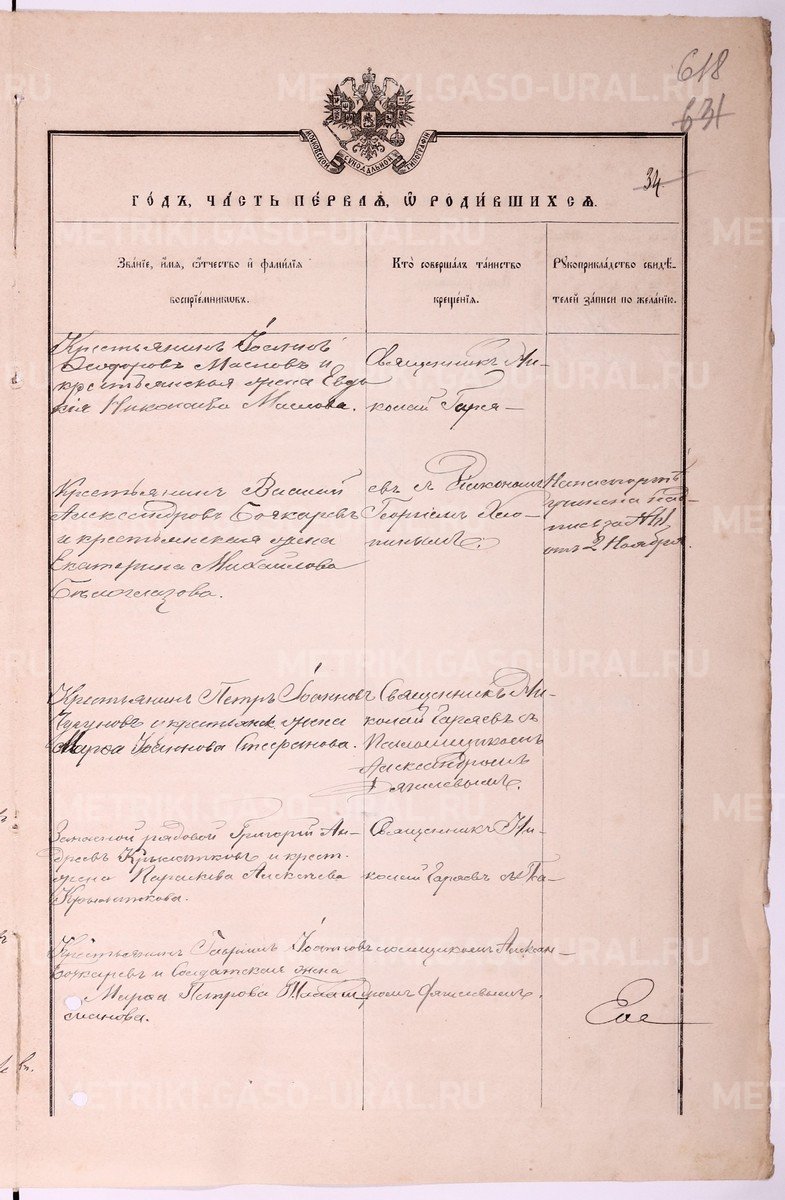 618
631
МОСКОВСКОЙ СѴНОДАЛЬНОЙ ТИПОГРАФІИ
34
ГО́ДЪ, ЧА́СТЬ ПЕ́РВАѦ, Ѡ҆ РОДИ́ВШИХСѦ.
Зва́нїе, и҆́мѧ, ѻ҆́тчество и҆ фами́лїѧ
воспрїе́мниковъ.
Кто̀ соверша́лъ та́инство
креще́нїѧ.
Рꙋкоприкла́дство свидѣ́-
телей за́писи по жела́нїю.
Крестьянинъ Іоаннъ
Ѳеодоровъ Масловъ и
крестьянская жена Евдо
кія Николаева Маслова.
Священникъ Ни-
колай Гаря-
Крестьянинъ Василій
Александровъ Бочкаревъ
и крестьянская жена
Екатерина Михайлова
Бѣлоглазова.
евъ съ Діакономъ
Георгіемъ
пинымъ.
На паспортѣ
за №
отъ 2 Ноября.
Крестьянинъ Петръ Іоанновъ
Чугуновъ и крестьянск жена
Марѳа Іоаннова Стефанова.
Священникъ Ни-
колай Гаряевъ съ
Псаломщикомъ
Александромъ
Запасной рядовой Григорій Ан-
дреевъ и крест.
жена Параскева Алексѣева
Священникъ Ни-
колай Гаряевъ съ Пса-
Крестьянинъ Гавріилъ Іоанновъ
Бочкаревъ и Солдатская жена
Марѳа Петрова
ломщикомъ Алексан-
дромъ
METRIKI.GASO-URAL.RU